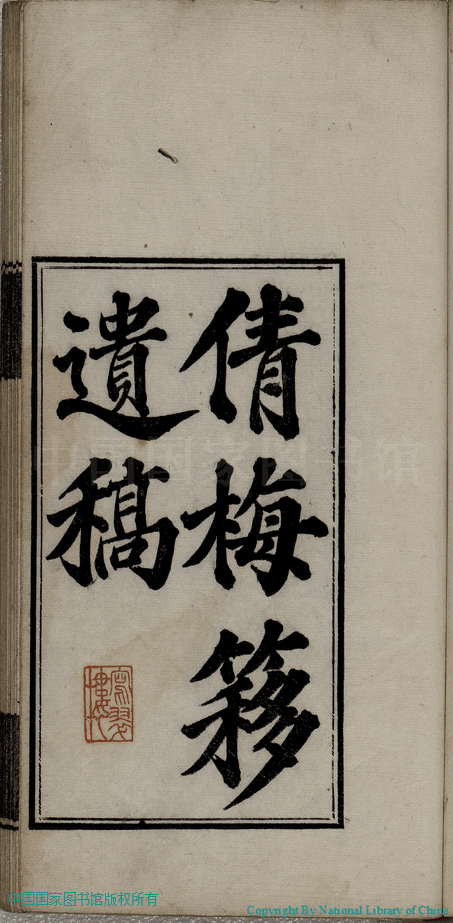 倩梅簃
遺稿
中国国家图书馆
中国国家图书馆版权所有
Copyright By National Library of China